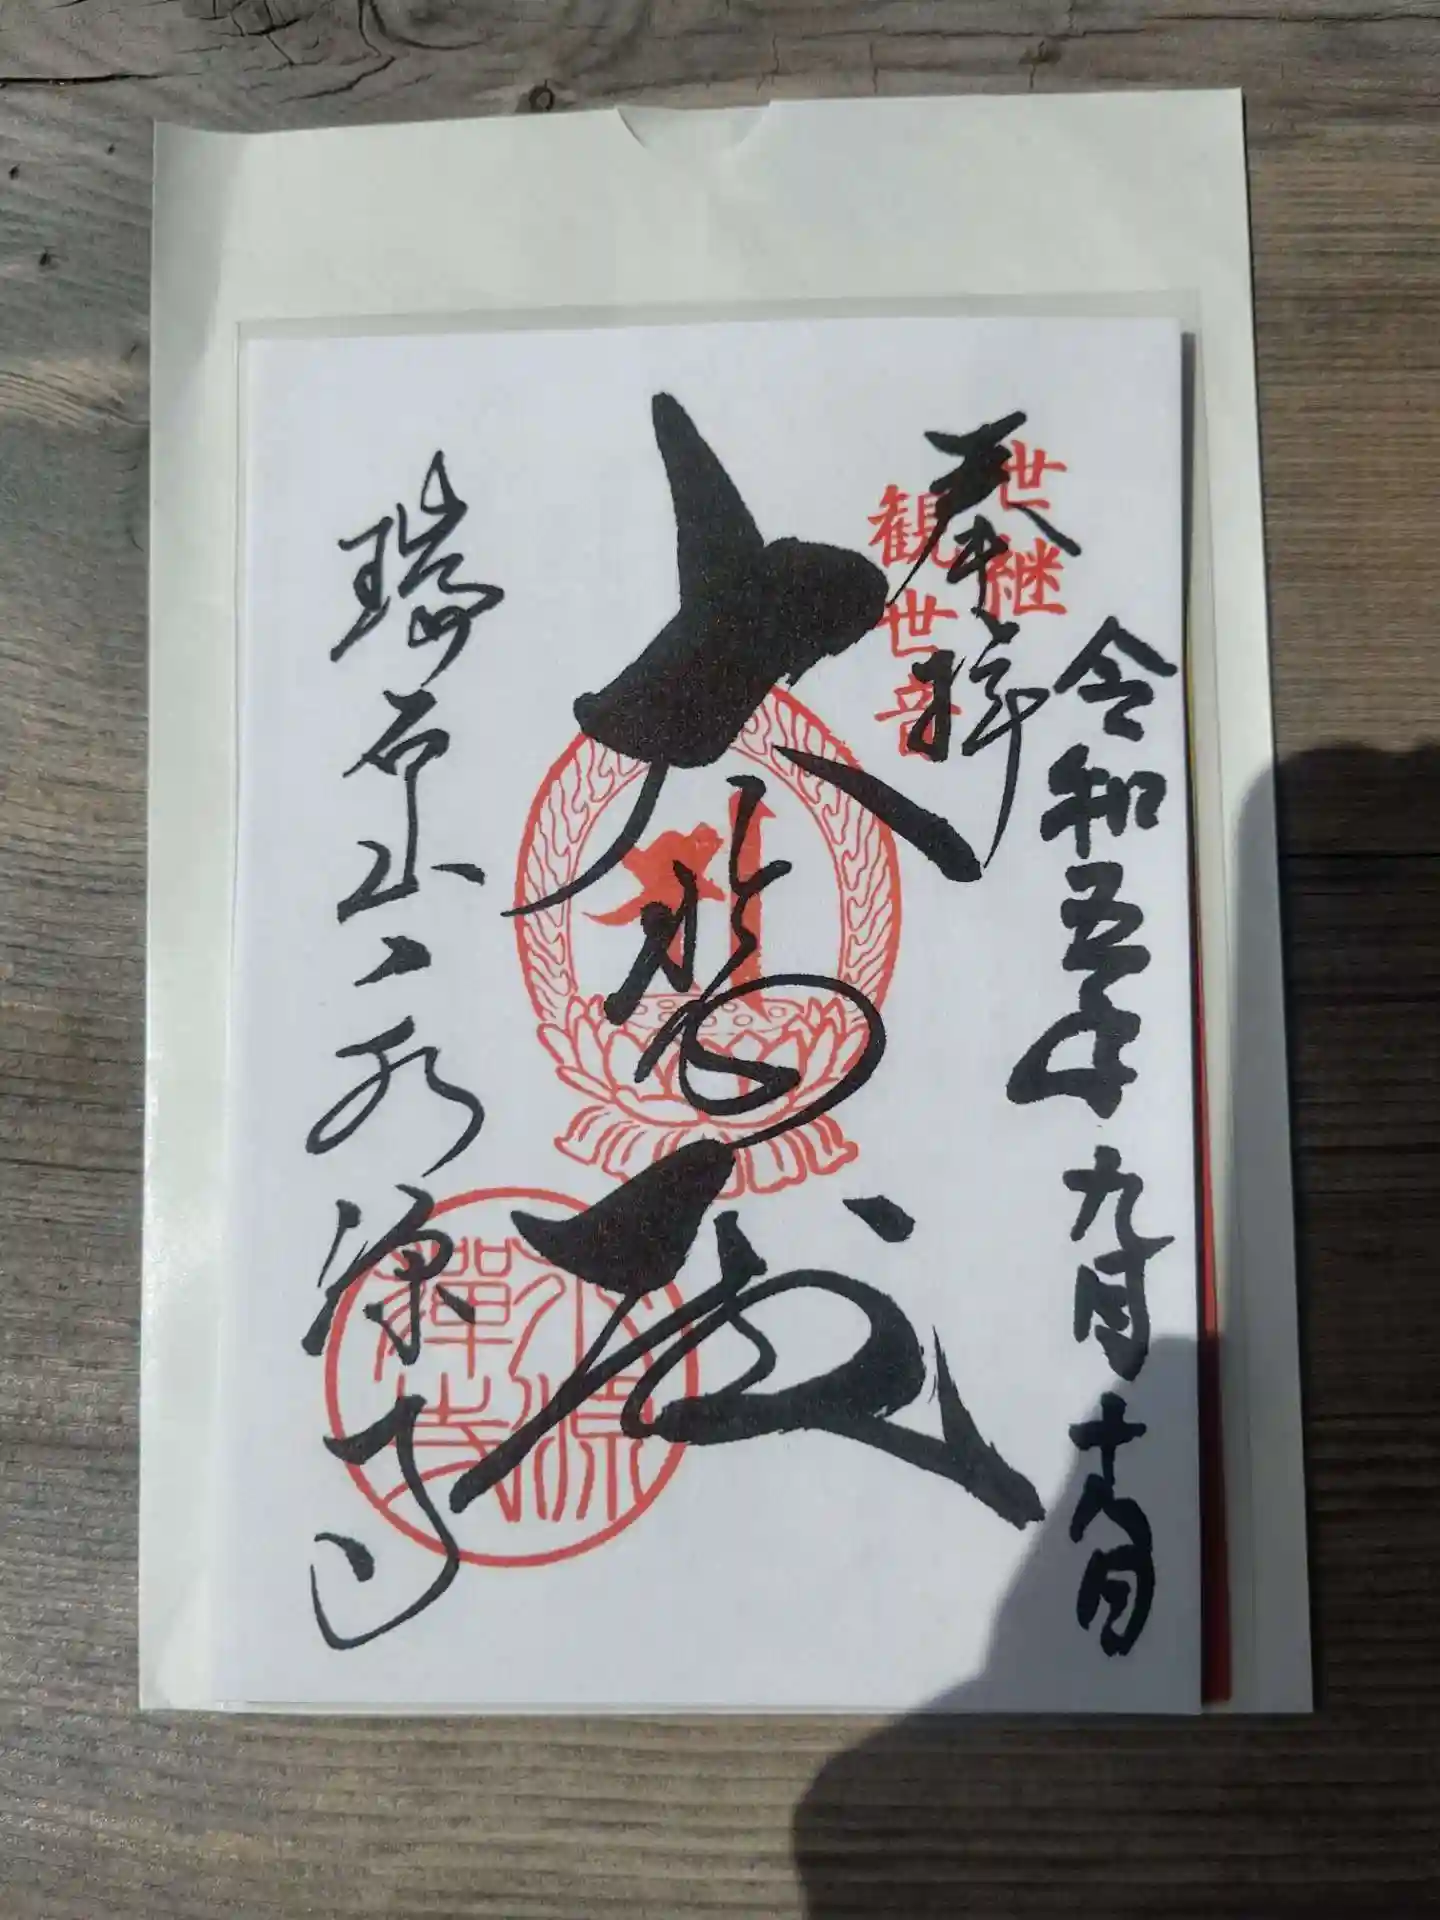 奉拝
世継
観世音
令和五年九月十八日
大悲殿
瑞石山永源寺
永源
禅寺